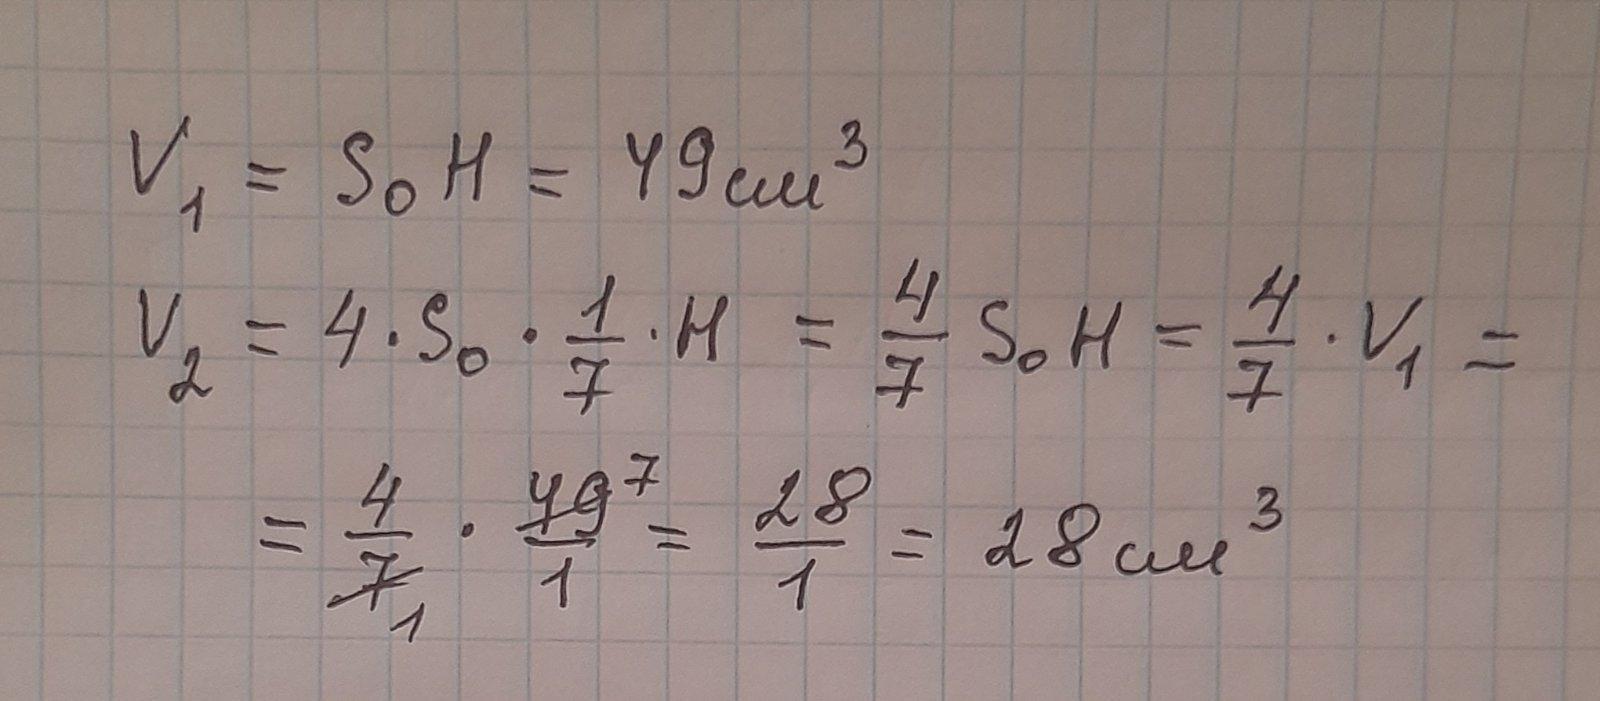 V₁ = S₀H = 49см³
V₂ = 4·S₀·1/7·H = 4/7 S₀H = 4/7·V₁ =
= 4/7₁ · 49⁷/1 = 28/1 = 28см³